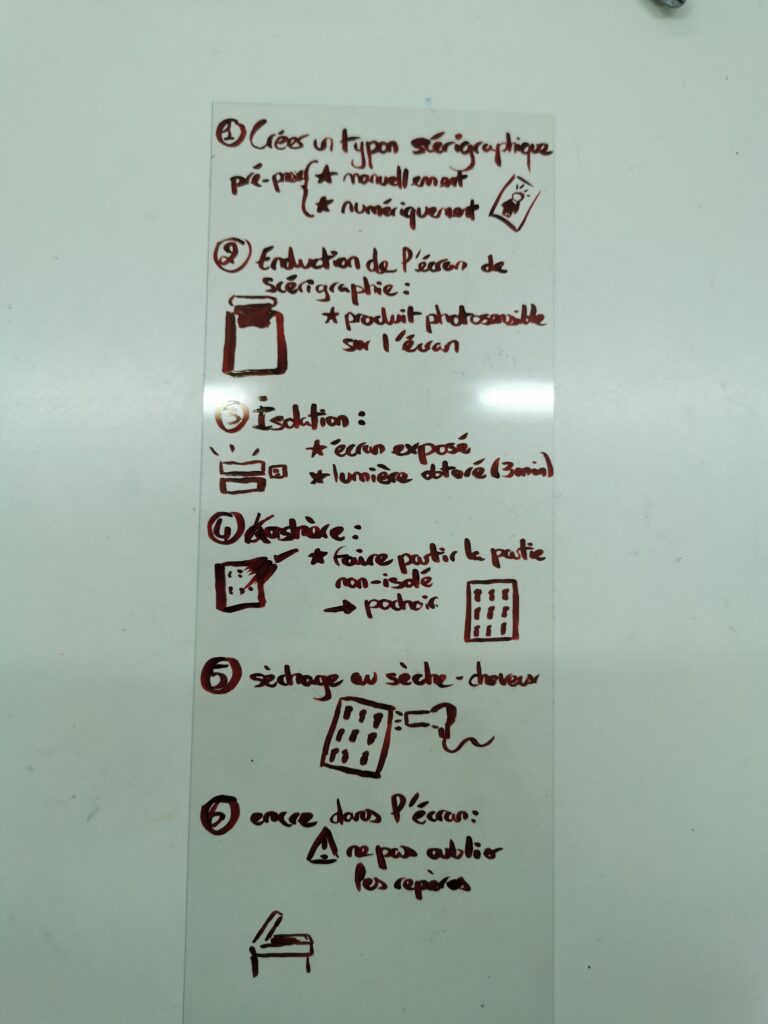 ① Créer un typon scérigraphique
pré-press { ★ manuellement
★ numériquement
② Enduction de l'écran de
scérigraphie :
★ produit photosensible
sur l'écran
③ Isolation :
★ écran exposé
★ lumière (3min)
④ :
★ faire partir la partie
non-isolé
→ pochoir
⑤ sèchage au sèche-cheveux
⑥ encre dans l'écran :
⚠ ne pas oublier
les repères